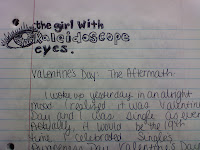 the girl with
Kaleidoscope
eyes.
Valentine's Day: The Aftermath.
I woke up yesterday in an alright
mood. I realized it was Valentine's
Day and I was single as ever.
Actually, it would be the 19th
time I celebrated Singles
Awareness Day. Valentine's Day